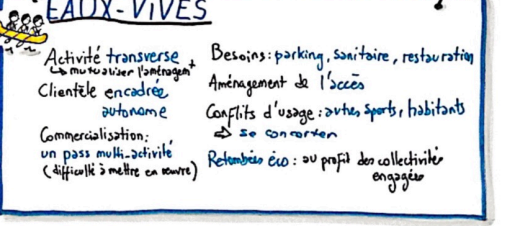 EAUX-VIVES
Activité transverse
↳ mutualiser l'aménagemt
Clientèle encadrée
autonome
Commercialisation:
un pass multi-activité
(difficulté à mettre en œuvre)
Besoins: parking, sanitaire, restauration
Aménagement de l'accès
Conflits d'usage: autres sports, habitants
⇨ se concerter
Retombées éco: au profit des collectivités
engagées